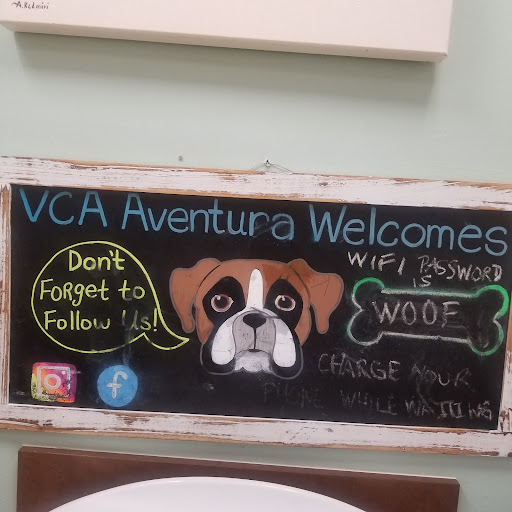 A.Kidmiri
VCA Aventura Welcomes
Don't
Forget to
Follow Us!
WIFI PASSWORD
IS
WOOF
CHARGE YOUR
PHONE WHILE WAITING